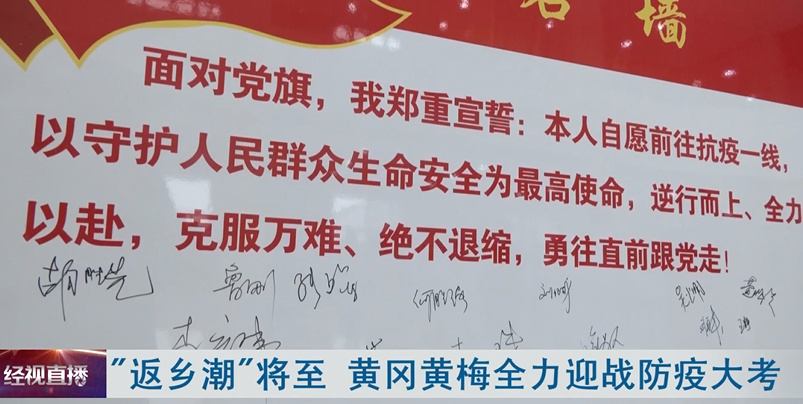 名墙
面对党旗，我郑重宣誓：本人自愿前往抗疫一线，
以守护人民群众生命安全为最高使命，逆行而上、全力
以赴，克服万难、绝不退缩，勇往直前跟党走！
经视直播
"返乡潮"将至 黄冈黄梅全力迎战防疫大考